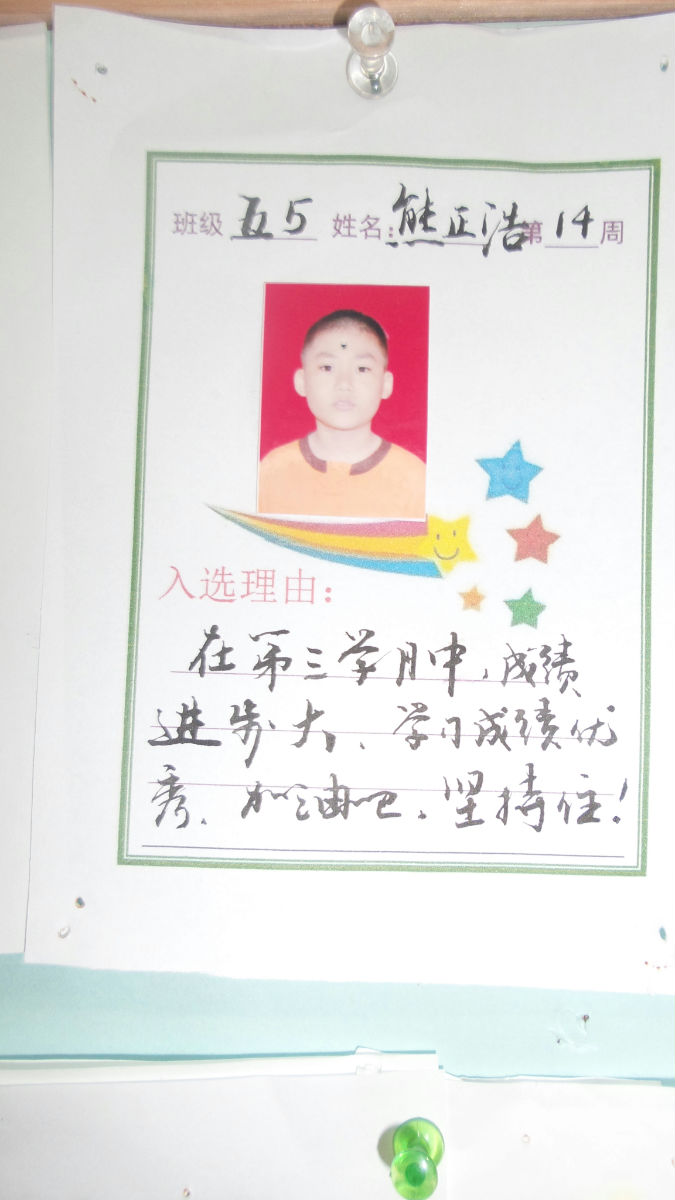 班级 五5 姓名: 熊正浩 第 14 周
入选理由:
在第三学月中,成绩
进步大、学习成绩优
秀、加油吧,坚持住!